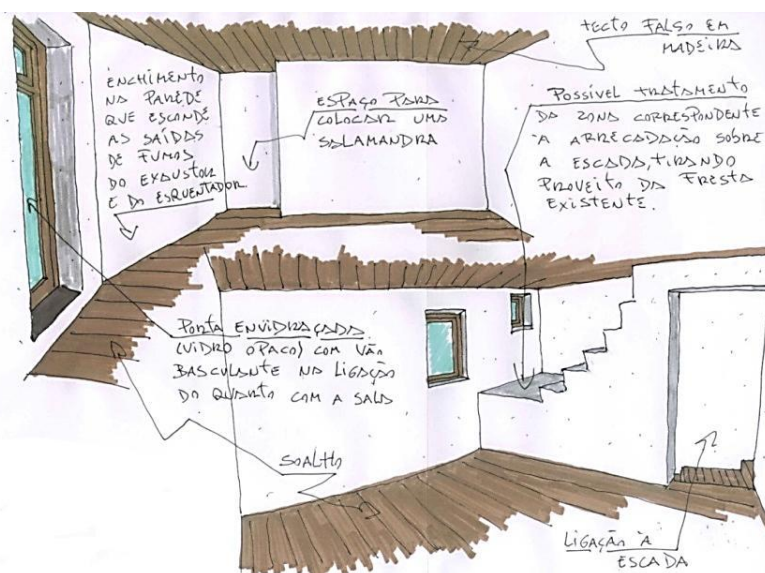 ENCHIMENTO
NA PAREDE
QUE ESCONDE
AS SAÍDAS
DE FUMOS
DO EXAUSTOR
E DO ESQUENTADOR
ESPAÇO PARA
COLOCAR UMA
SALAMANDRA
TECTO FALSO EM
MADEIRA
POSSÍVEL TRATAMENTO
DA ZONA CORRESPONDENTE
À ARRECADAÇÃO SOBRE
A ESCADA, TIRANDO
PROVEITO DA FRESTA
EXISTENTE.
PORTA ENVIDRAÇADA
(VIDRO OPACO) COM VÃO
BASCULANTE NA LIGAÇÃO
DO QUARTO COM A SALA
SOALHO
LIGAÇÃO À
ESCADA